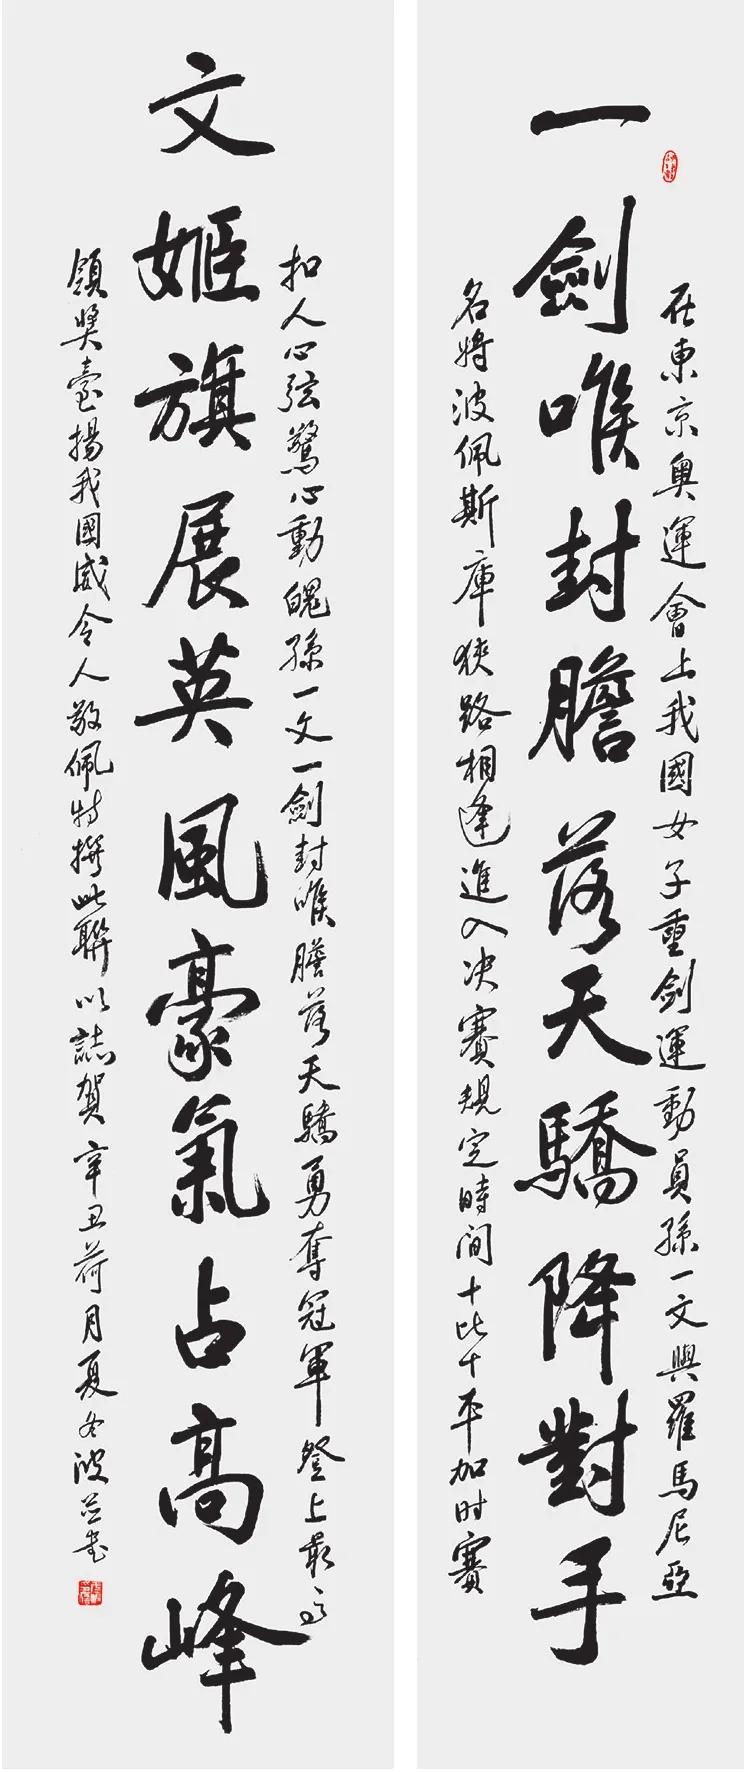 一劍喉封膽落天驕降對手
文姬旗展英風豪氣占高峰
在東京奧運會上我國女子重劍運動員孫一文與羅馬尼亞
名將波佩斯庫狹路相逢進入决賽規定時間十比十平加时賽
扣人心弦驚心動魄孫一文一劍封喉膽落天驕勇奪冠軍登上最高
領獎臺揚我國威令人敬佩特撰此聯以誌賀辛丑荷月夏冬波並書